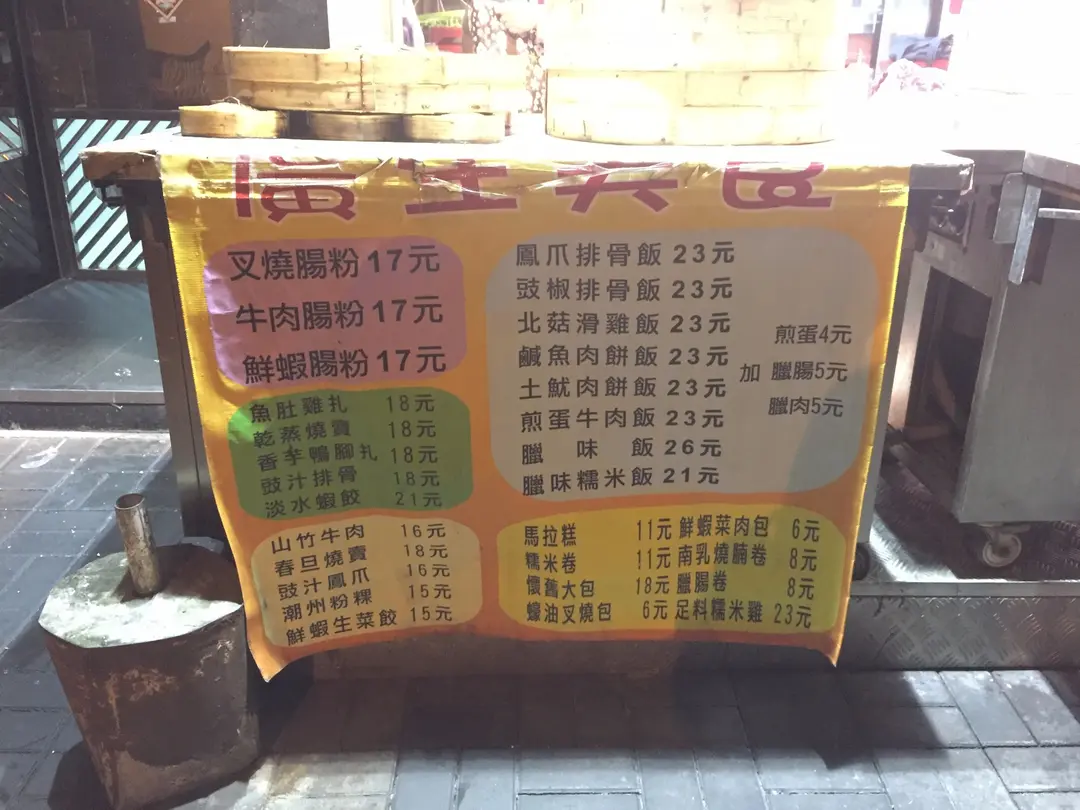 叉燒腸粉17元
牛肉腸粉17元
鮮蝦腸粉17元
魚肚雞扎 18元
乾蒸燒賣 18元
香芋鴨腳扎 18元
豉汁排骨 18元
淡水蝦餃 21元
山竹牛肉 16元
春旦燒賣 18元
豉汁鳳爪 16元
潮州粉粿 15元
鮮蝦生菜餃 15元
鳳爪排骨飯 23元
豉椒排骨飯 23元
北菇滑雞飯 23元
鹹魚肉餅飯 23元
土魷肉餅飯 23元
煎蛋牛肉飯 23元
臘味飯 26元
臘味糯米飯 21元
煎蛋4元
加 臘腸5元
臘肉5元
馬拉糕 11元 鮮蝦菜肉包 6元
糯米卷 11元 南乳燒腩卷 8元
懷舊大包 18元 臘腸卷 8元
蠔油叉燒包 6元 足料糯米雞 23元